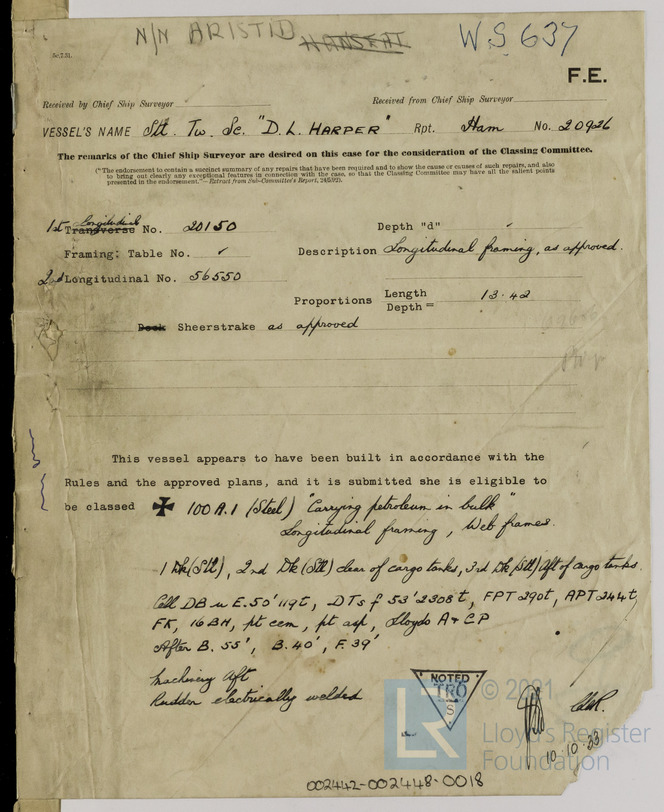 N/N ARISTID HANSEAT
WS 637
5c,7.31.
F.E.
Received by Chief Ship Surveyor
Received from Chief Ship Surveyor
VESSEL'S NAME Stl. Tw. Sc. "D. L. HARPER" Rpt. Ham No. 20926
The remarks of the Chief Ship Surveyor are desired on this case for the consideration of the Classing Committee.
("The endorsement to contain a succinct summary of any repairs that have been required and to show the cause or causes of such repairs, and also
to bring out clearly any exceptional features in connection with the case, so that the Classing Committee may have all the salient points
presented in the endorsement."—Extract from Sub-Committee's Report,
Longitudinal
1st Transverse No. 20150 Depth "d" ✓
Framing: Table No. ✓ Description Longitudinal framing, as approved.
2nd Longitudinal No. 56550
Proportions Length
Depth = 13.42
Deck Sheerstrake as approved
This vessel appears to have been built in accordance with the
Rules and the approved plans, and it is submitted she is eligible to
be classed ✠ 100 A.1 (Steel) "Carrying petroleum in bulk"
Longitudinal framing, Web frames.
1 Dk (Stl), 2nd Dk (Stl) clear of cargo tanks, 3rd Dk (Stl) Aft of cargo tanks
Cell DB u E. 50' 119t, DTs f 53' 2308t, FPT 290t, APT 244t,
FK, 16 BH, pt cem, pt asp, Lloyds A & CP
After B. 55', B. 40', F. 39'
Machinery Aft
Rudder electrically welded
NOTED
TRO
S
10.10.33
© 2021
Lloyd's Register
Foundation
LR
002442-002448-0018